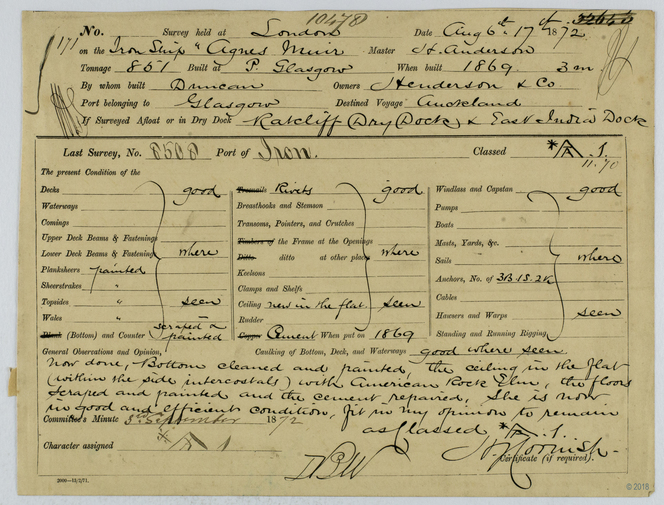 10478
No. Survey held at London Date Aug 6th, 17th 1872
171 on the Iron Ship "Agnes Muir Master H. Anderson
Tonnage 851 Built at P. Glasgow When built 1869 3m
By whom built Duncan Owners Henderson & Co.
Port belonging to Glasgow Destined Voyage Auckland
If Surveyed Afloat or in Dry Dock Ratcliff (Dry Dock) & East India Dock
Last Survey, No. 8508 Port of Iron. Classed *A.1.
11.70
The present Condition of the
Decks good Treenails Rivets good Windlass and Capstan good
Waterways Breasthooks and Stemson Pumps
Comings Transoms, Pointers, and Crutches Boats
Upper Deck Beams & Fastenings Timbers of the Frame at the Openings Masts, Yards, &c.
Lower Deck Beams & Fastenings where Ditto ditto at other places where Sails where
Planksheers painted Keelsons Anchors, No. of 3B.1S.2K
Sheerstrakes " Clamps and Shelfs Cables
Topsides " seen Ceiling new in the flat. seen Hawsers and Warps seen
Wales " Rudder
scraped &
Blank (Bottom) and Counter painted Copper Cement When put on 1869 Standing and Running Rigging
General Observations and Opinion, Caulking of Bottom, Deck, and Waterways good where seen
Now done, Bottom cleaned and painted, the ceiling in the flat
(within the side intercostals) with American Rock Elm, the floors
scraped and painted and the cement repaired, She is now
in good and efficient condition, fit in my opinion to remain
as Classed *A.1.
Committee's Minute September 1872
Character assigned A 1
Certificate (if required).
2000—13/2/71.
© 2018